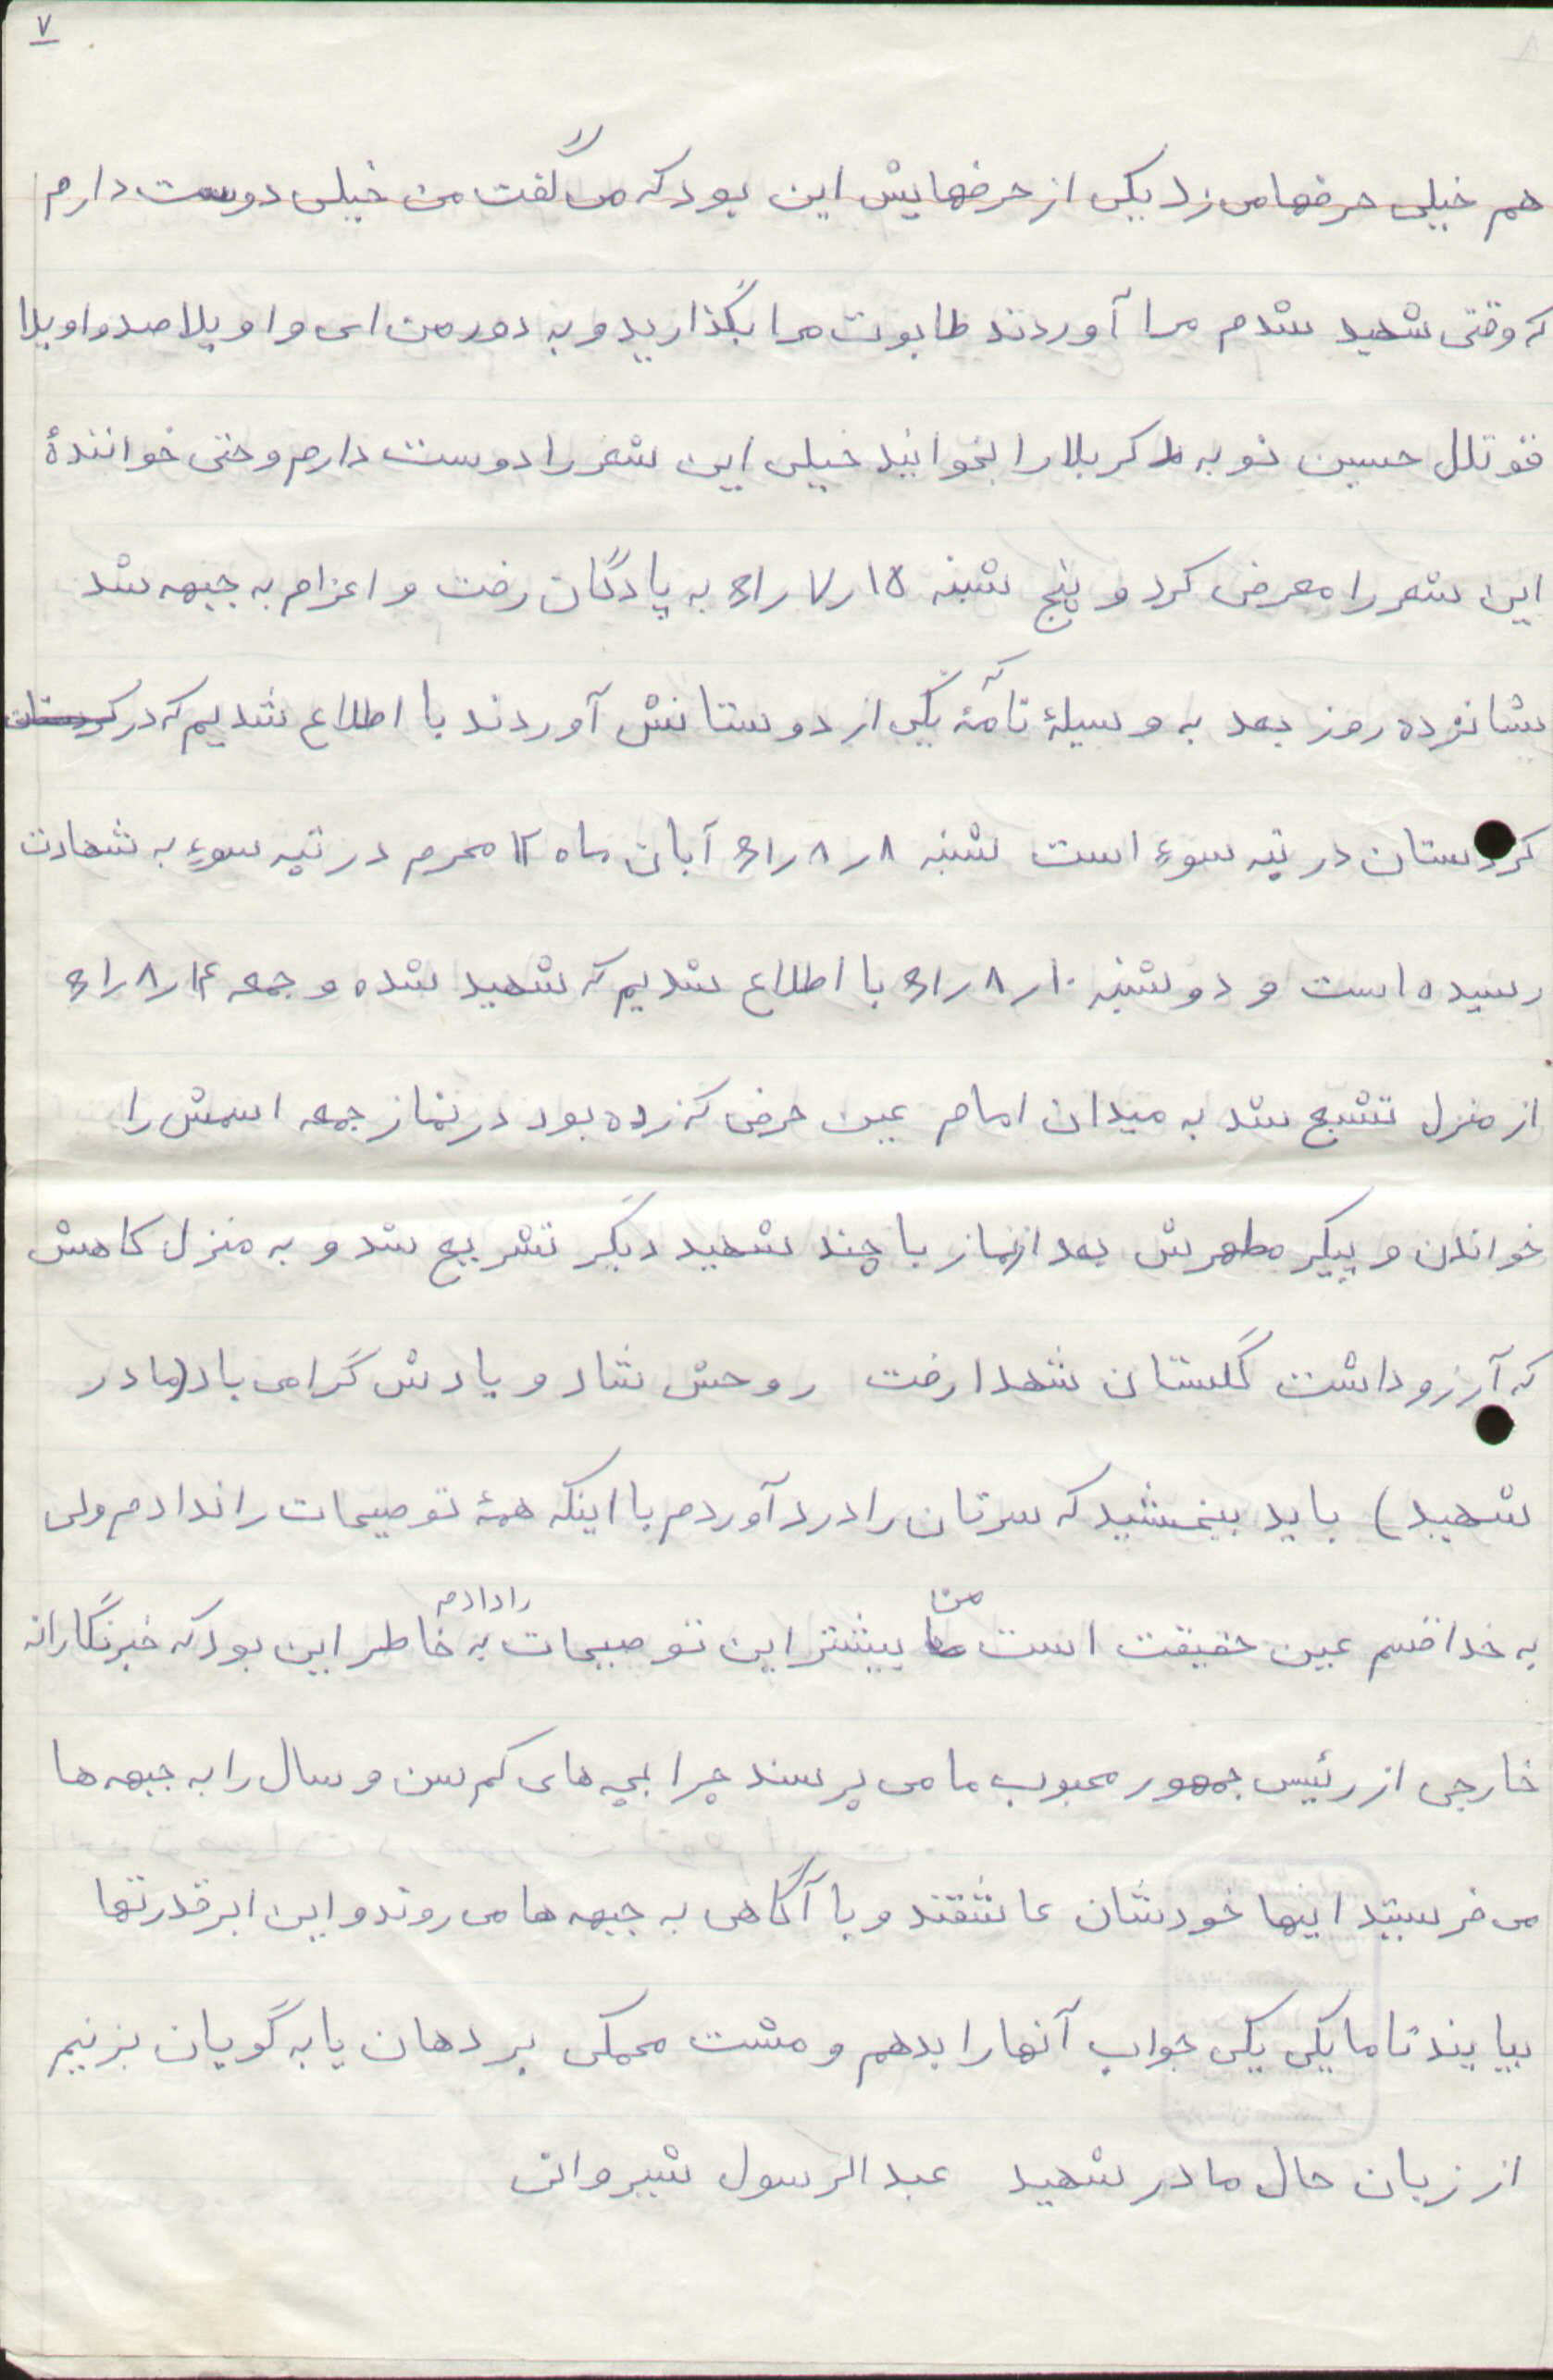 ۷
هم خیلی حرفها می زد یکی از حرفهایش این بود که می گفت من خیلی دوست دارم
که وقتی شهید شدم مرا آوردند طابوت مرا بگذارید و به دور من ای واویلا صد واویلا
قوتلل حسین نو به کربلا را بخوانید خیلی این شعر را دوست دارم و حتی خوانندۀ
این شعر را معرفی کرد و پنج شبنه ۱۵ر۷ر۶۱ به پادگان رفت و اعزام به جبهه شد
شانزده روز بعد به وسیلۀ نامۀ که یکی از دوستانش آوردند با اطلاع شدیم که در کردستان
کردستان در تپه سوء است شنبه ۸ر۸ر۶۱ آبان ماه ۱۲ محرم در تپه سوء به شهادت
رسیده است و دوشنبه ۱۰ر۸ر۶۱ با اطلاع شدیم که شهید شده و جمعه ۱۴ر۸ر۶۱
از منزل تشیع شد به میدان امام عین حرفی که زده بود در نماز جمعه اسمش را
خواندن و پیکر مطهرش بعد از نماز با چند شهید دیگر تشریع شد و به منزل گاهش
که آرزو داشت گلستان شهدا رفت روحش شاد و یادش گرامی باد (مادر
شهید) باید ببخشید که سرتان را درد آوردم با اینکه همۀ توصیحات را ندادم ولی
به خدا قسم عین حقیقت است من بیشتر این توصیحات را دادم به خاطر این بود که خبرنگاران
خارجی از رئیس جمهور محبوب ما می پرسند چرا بچه های کم سن و سال را به جبهه ها
می فرستید اینها خودشان عاشقند و با آگاهی به جبهه ها می روند و این ابرقدرتها
بیایند تا ما یکی یکی جواب آنها را بدهم و مشت محمکی بر دهان یابه گویان بزنیم
از زبان حال مادر شهید عبدالرسول شیروانی